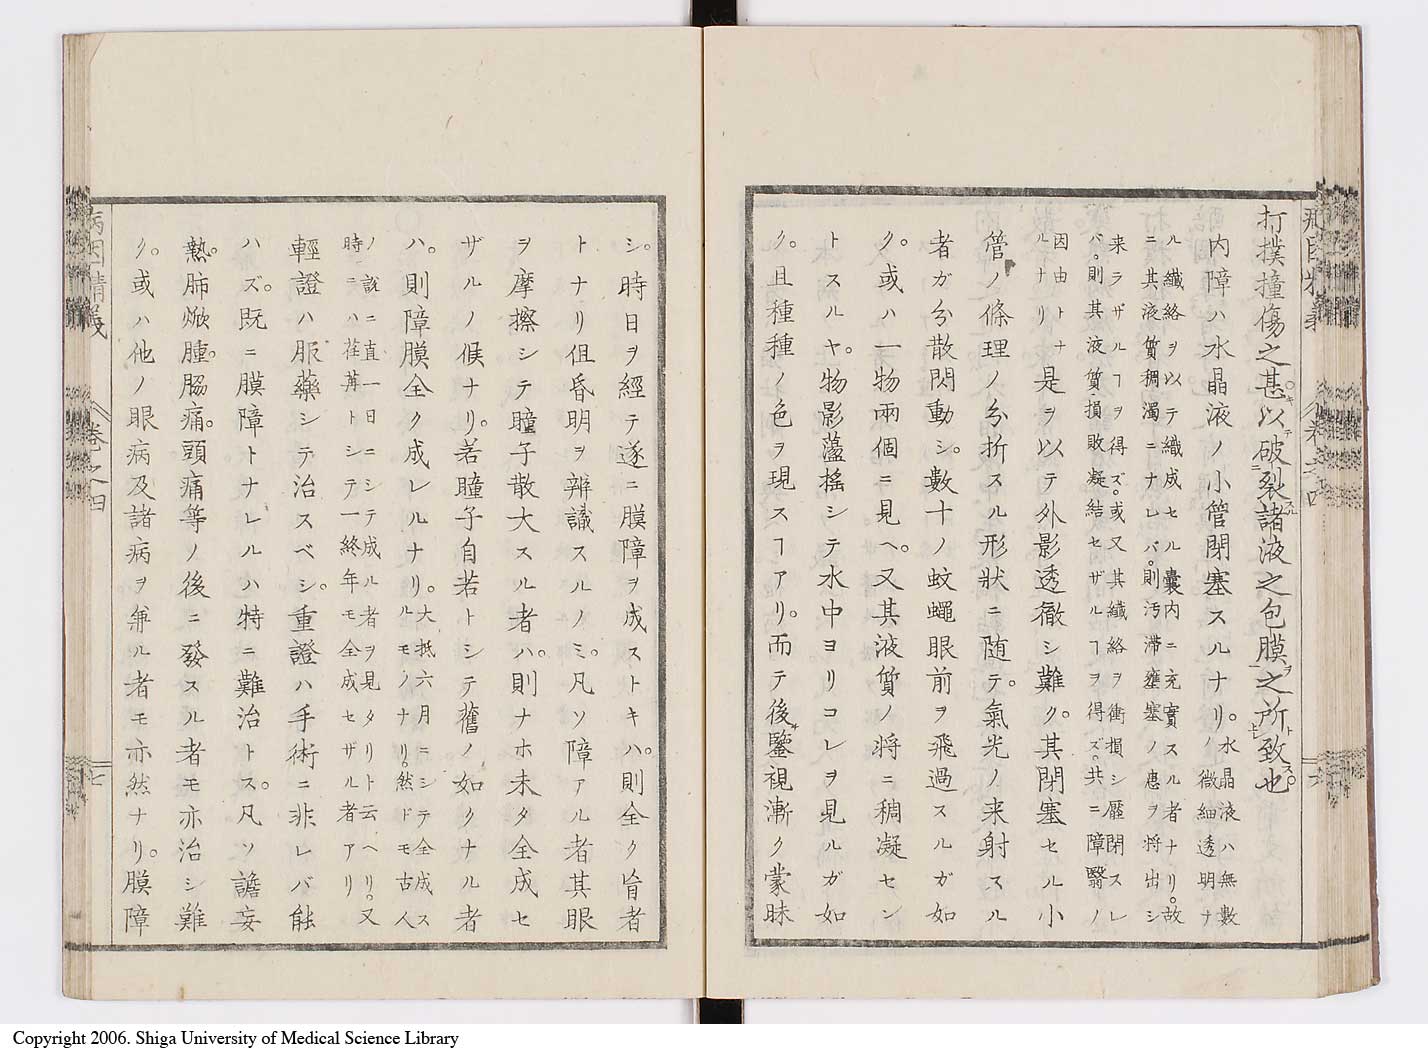 打撲撞傷之甚。以破裂諸液之包膜之所致也。
内障ハ水晶液ノ小管閉塞スルナリ。水晶液ハ無數
ノ微細透明ナ
ル纎絡ヲ以テ織成セル嚢内ニ充實スル者ナリ。故
ニ其液質稠濁ニナレバ。則汚滞壅塞ノ患ヲ将出シ
来ラザルヿヲ得ズ。或又其纎絡ヲ衝損シ壓閉スレ
バ。則其液質損敗凝結セザルヿヲ得ズ。共ニ障翳ノ
因由トナ
ルナリ
是ヲ以テ外影透徹シ難ク。其閉塞セル小
管ノ條理ノ分折スル形狀ニ随テ。氣光ノ来射スル
者ガ分散閃動シ。數十ノ蚊蠅眼前ヲ飛過スルガ如
ク。或ハ一物兩個ニ見ヘ。又其液質ノ将ニ稠凝セン
トスルヤ。物影蘯搖シテ水中ヨリコレヲ見ルガ如
ク。且種種ノ色ヲ現スヿアリ。而テ後鑒視漸ク蒙昧
シ。時日ヲ經テ遂ニ膜障ヲ成ストキハ。則全ク盲者
トナリ但昏明ヲ辨識スルノミ。凡ソ障アル者其眼
ヲ摩擦シテ瞳子散大スル者ハ。則ナホ未タ全成セ
ザルノ候ナリ。若瞳子自若トシテ舊ノ如クナル者
ハ。則障膜全ク成レルナリ。大抵六月ニシテ全成ス
ルモノナリ。然ドモ古人
ノ説ニ直一日ニシテ成ル者ヲ見タリト云ヘリ。又
時ニハ荏苒トシテ一終年モ全成セザル者アリ
輕證ハ服藥シテ治スベシ。重證ハ手術ニ非レバ能
ハズ。既ニ膜障トナレルハ特ニ難治トス。凡ソ譫妄
熱。肺焮腫。脇痛。頭痛等ノ後ニ發スル者モ亦治シ難
ク。或ハ他ノ眼病及諸病ヲ兼ル者モ亦然ナリ。膜障
病因精義
卷之四
七
Copyright 2006. Shiga University of Medical Science Library